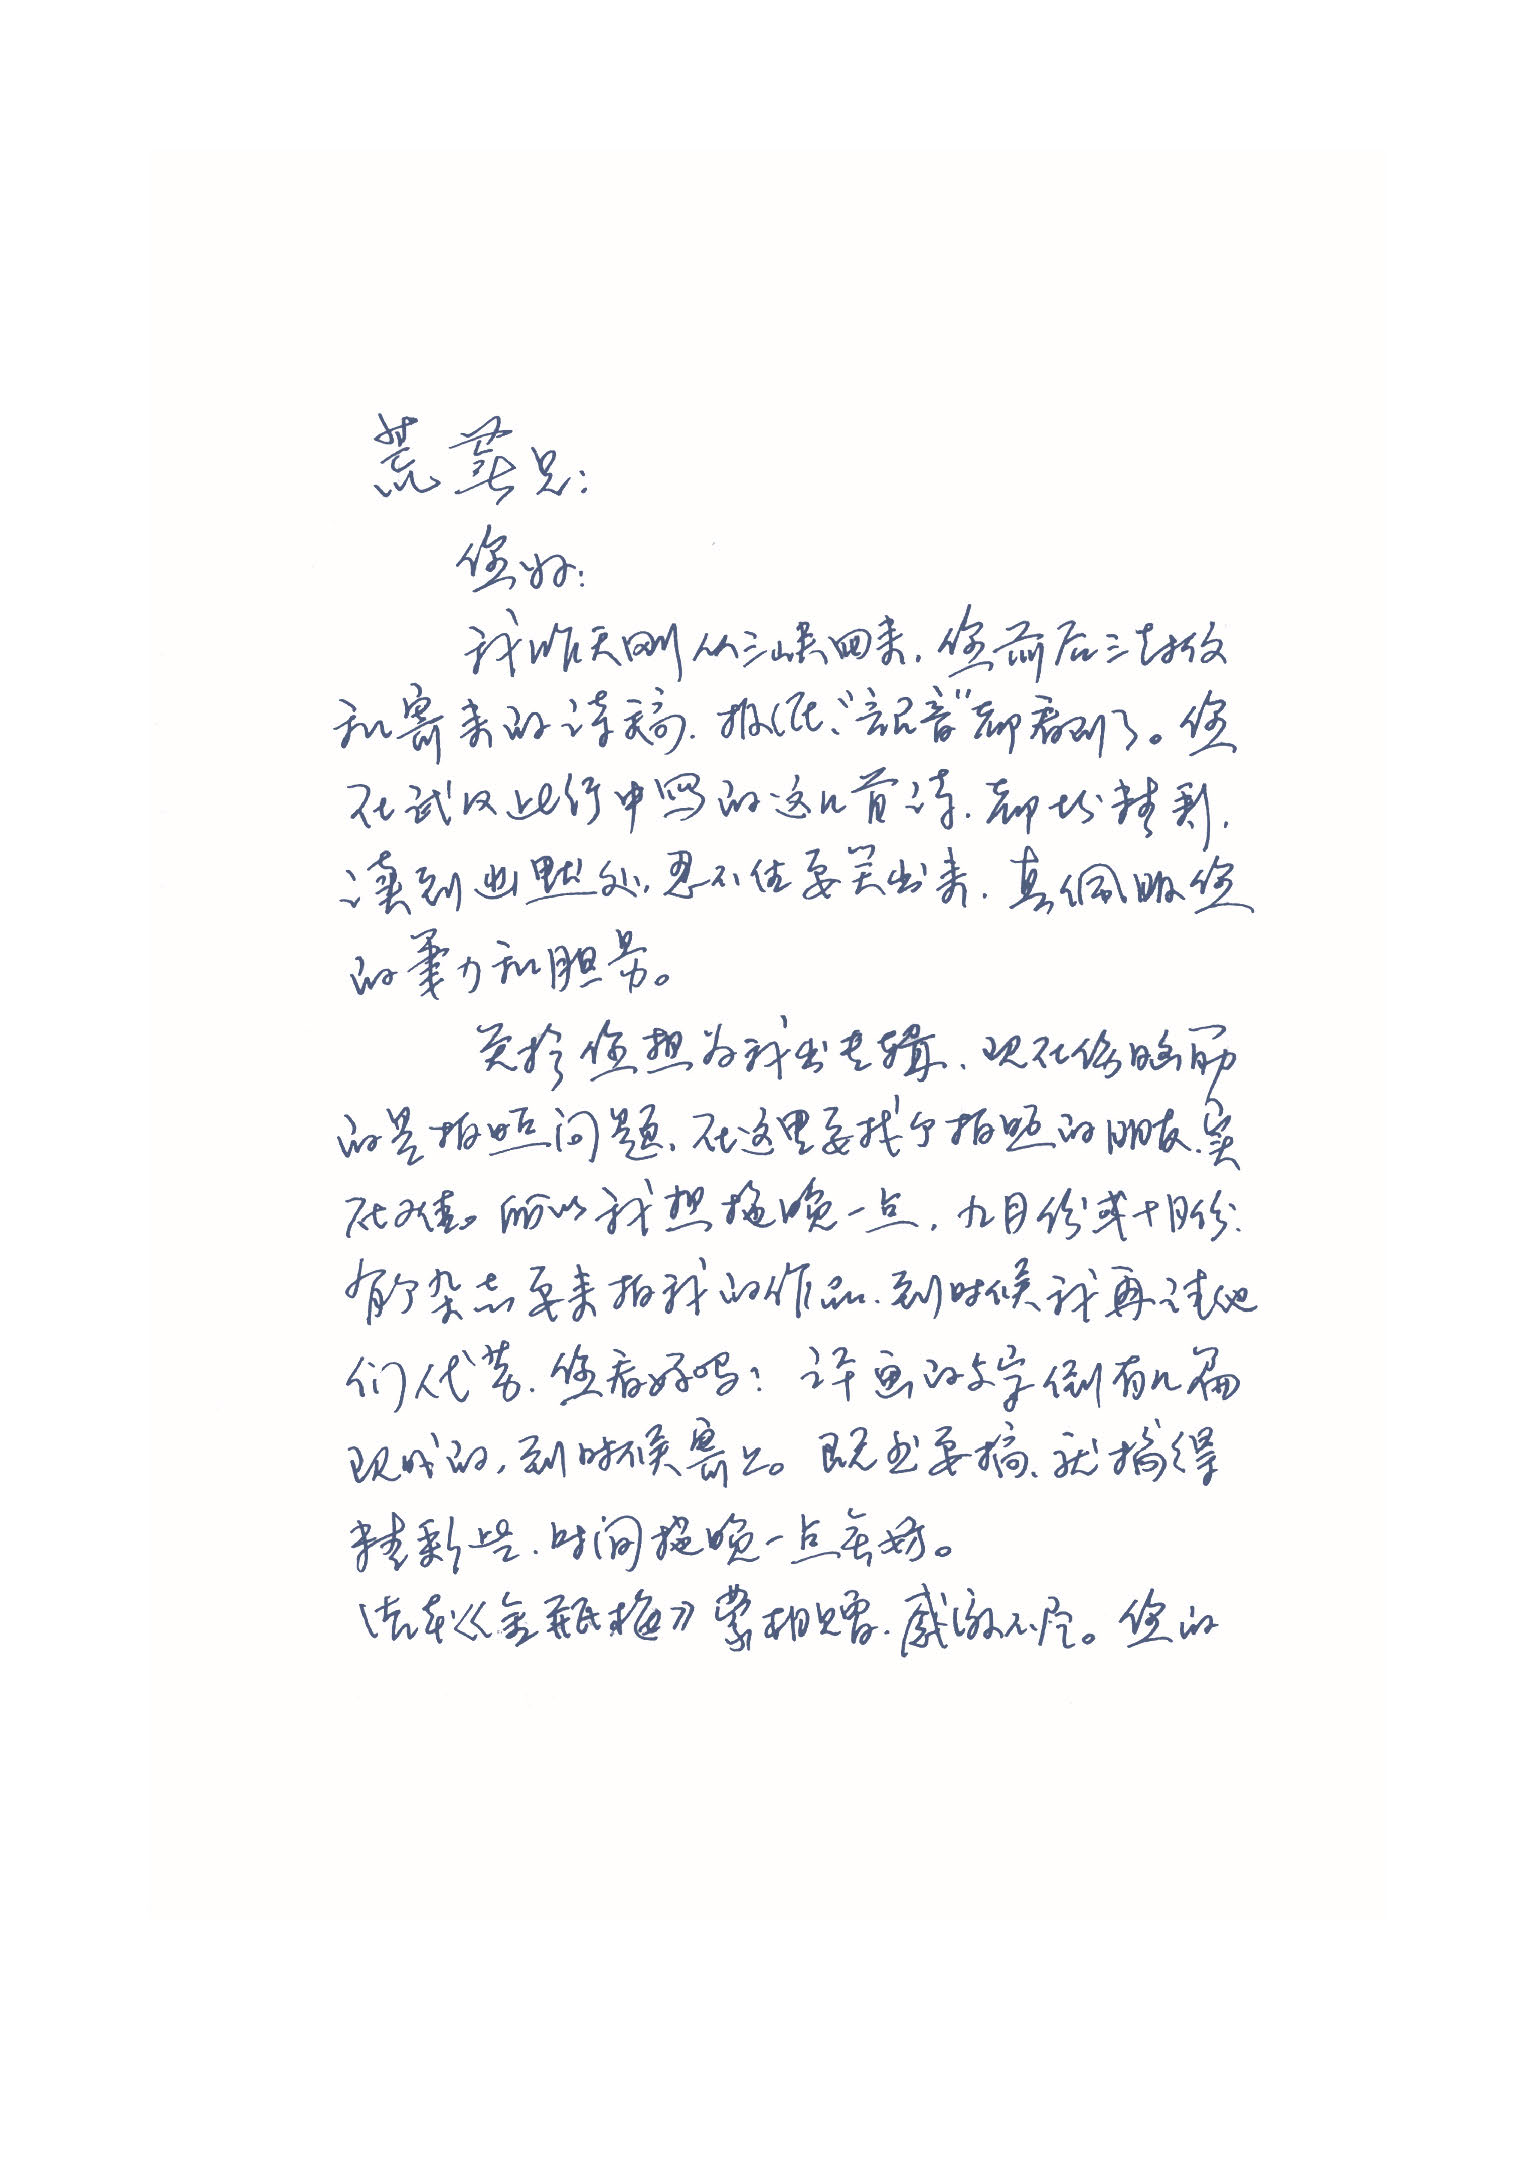 荒芜兄：
您好：
我昨天刚从三峡回来，您前后三封信
和寄来的诗稿、报纸、“言论音”都看到了。您
在武汉此行中写的这几首诗，都极精彩，
读到幽默处，忍不住要笑出来，真佩服您
的笔力和胆量。
关于您想为我出专辑，现在伤脑筋
的是拍照问题，在这里要找个拍照的朋友，实
在难。所以我想拖晚一点，九月份或十月份，
有个杂志要来拍我的作品，到时候我再请他
们代劳，您看好吗？评画的文字倒有几篇
现成的，到时候寄上。既然要搞，就搞得
精彩些，时间拖晚一点无妨。
洁本《金瓶梅》蒙相赠，感激不尽。您的